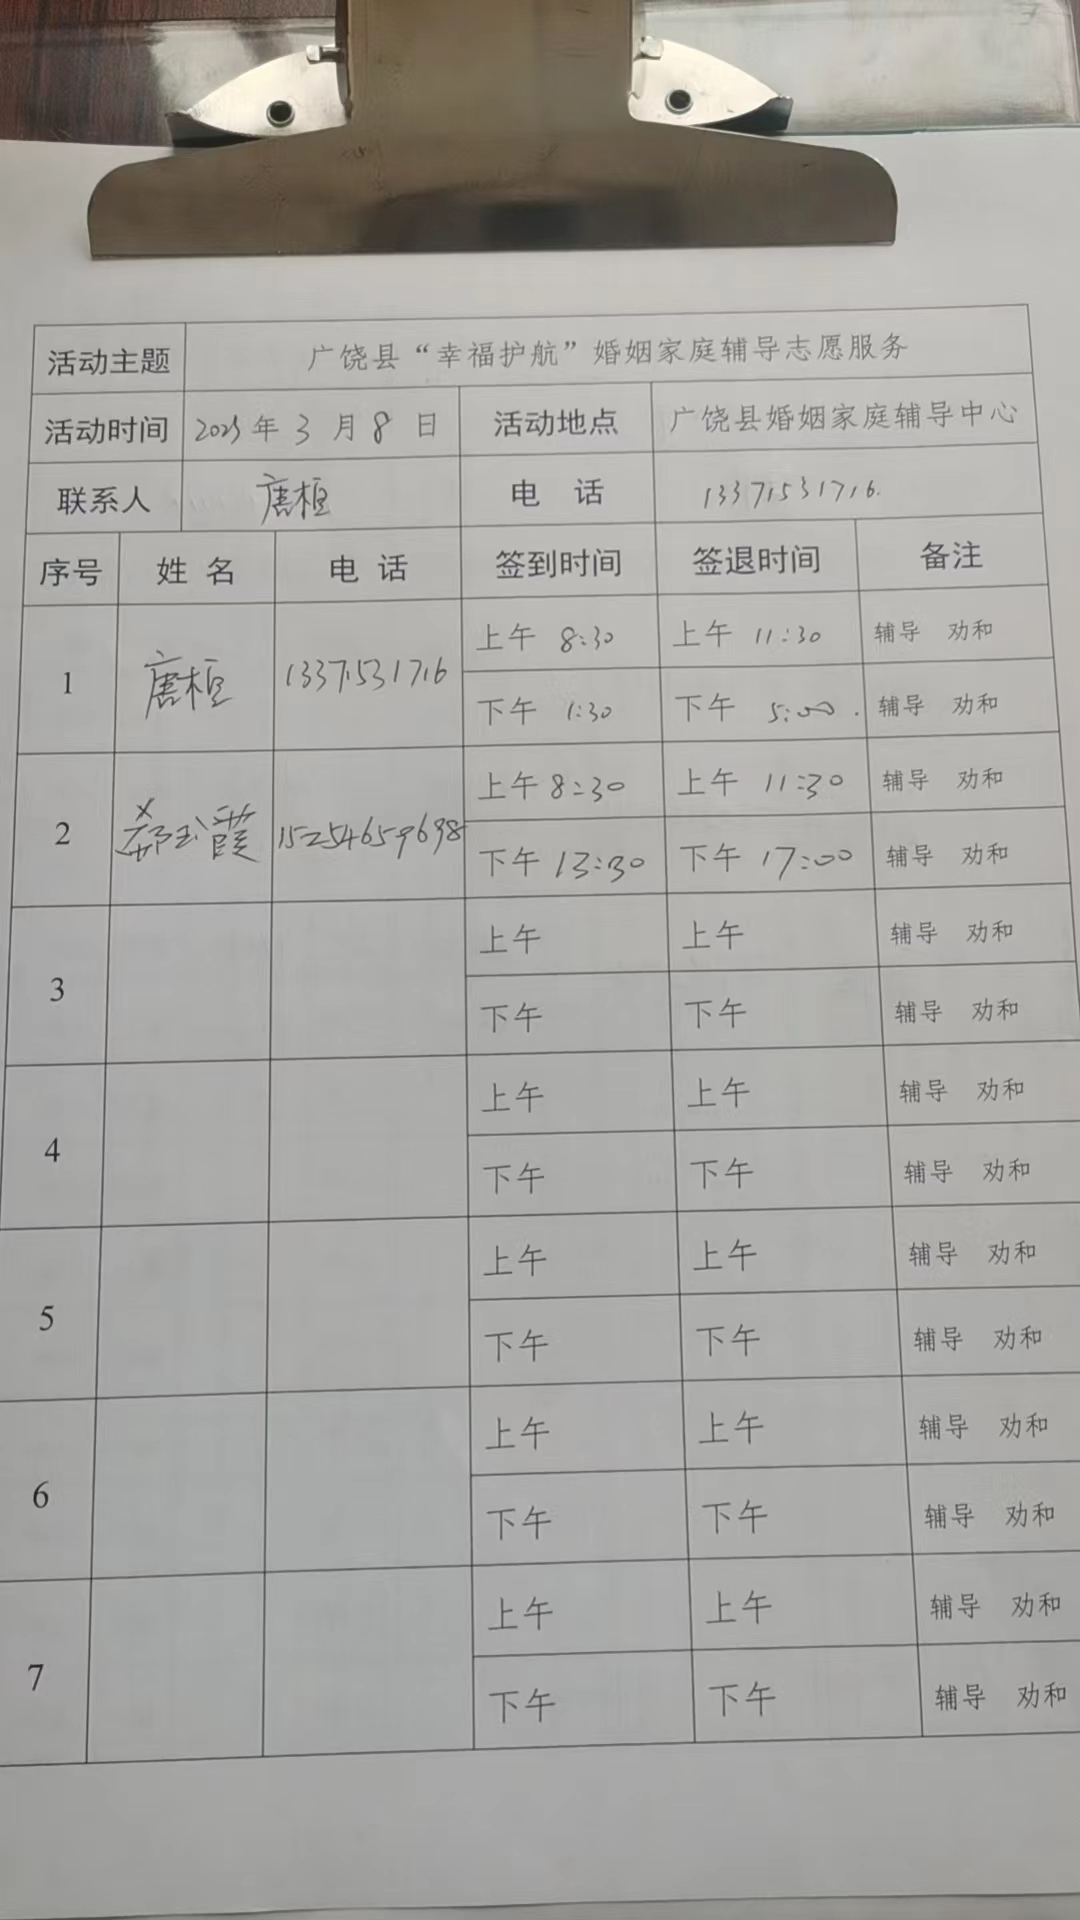 活动主题 广饶县“幸福护航”婚姻家庭辅导志愿服务
活动时间 2025年 3 月 8 日 活动地点 广饶县婚姻家庭辅导中心
联系人 唐桓 电 话 13371531716.
序号 姓 名 电 话 签到时间 签退时间 备注
1 唐桓 13371531716 上午 8:30 上午 11:30 辅导 劝和
下午 1:30 下午 5:00. 辅导 劝和
2 郝玉霞 15254659698 上午 8:30 上午 11:30 辅导 劝和
下午 13:30 下午 17:00 辅导 劝和
3 上午 上午 辅导 劝和
下午 下午 辅导 劝和
4 上午 上午 辅导 劝和
下午 下午 辅导 劝和
5 上午 上午 辅导 劝和
下午 下午 辅导 劝和
6 上午 上午 辅导 劝和
下午 下午 辅导 劝和
7 上午 上午 辅导 劝和
下午 下午 辅导 劝和